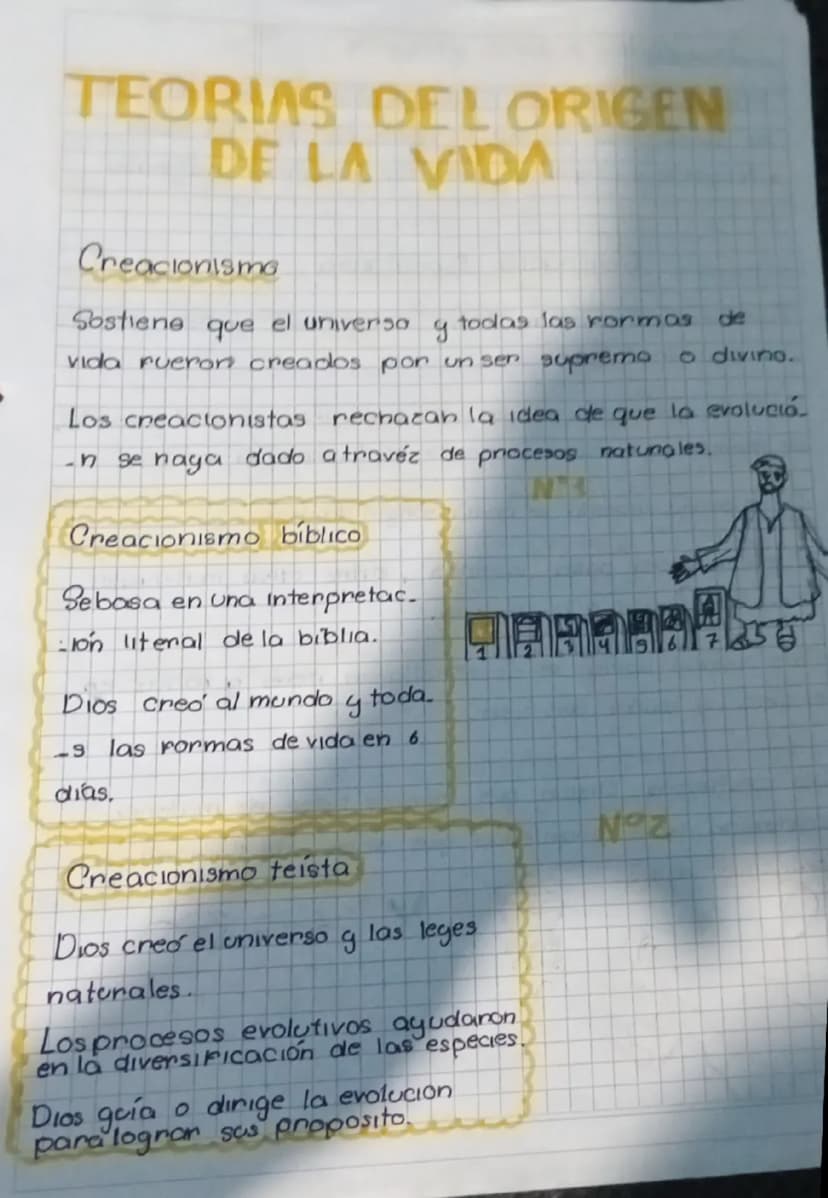 TEORIAS DEL ORIGEN
DE LA VIDA
Creacionismo
Sostiene que el universo y todas las formas de
vida fueron creados por un ser supremo o divino.
Los creacionistas rechazan la idea de que la evolució-
-n se haya dado a travéz de procesos naturales.
N°1
Creacionismo bíblico
Se basa en una interpretac-
-ión literal de la biblia.
Dios creó al mundo y toda-
-s las formas de vida en 6
días.
1 2 3 4 5 6 7
N°2
Creacionismo teísta
Dios creó el universo y las leyes
naturales.
Los procesos evolutivos ayudaron
en la diversificación de las especies.
Dios guía o dirige la evolución
para lograr sus proposito.